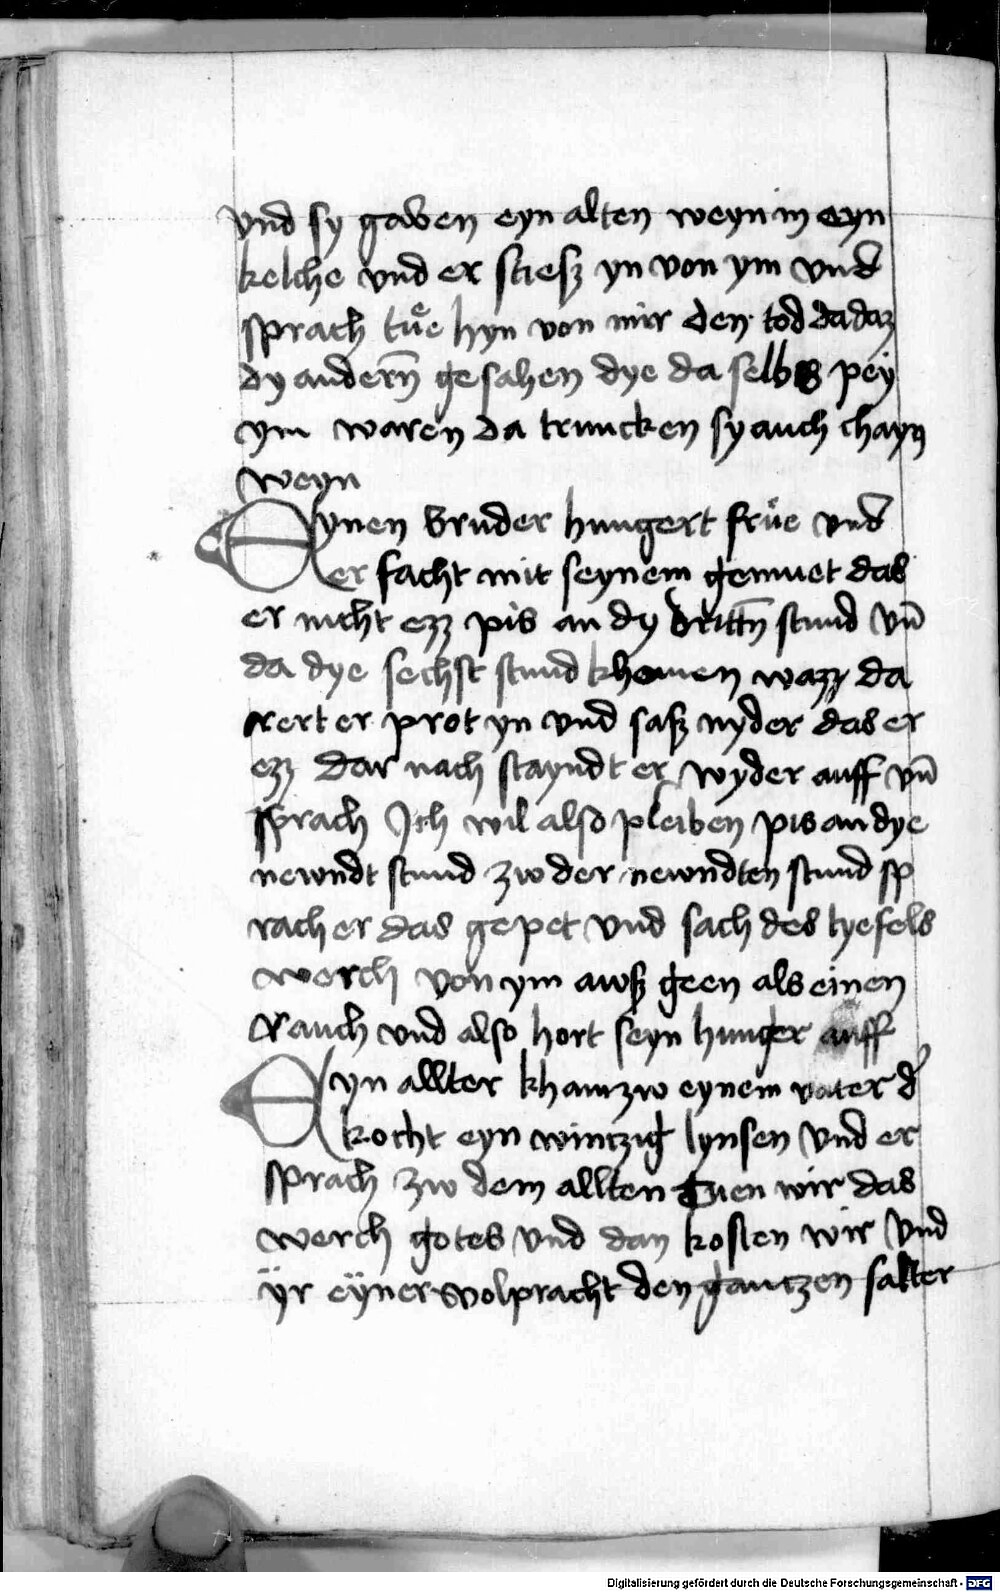 vnd sy gaben eyn alten weyn in eyn
kelche vnd er stiesz yn von ym vnd
sprach tuͤe hyn von mir den tod da daz
dy anderñ gesahen dye da selbs pey
ym waren da truncken sy auch chayn
weyn
Eynen bruder hungert fruͤe vnd
er facht mit seynem gemuet das
er nicht ezz pis an dy drittñ stund vn̄
da dye sechst stund khomen wazz da
rert er prot yn vnd sasz nyder das er
ezz dar nach stayndt er wyder auff vn̄
sprach Ich wil also pleiben pis an dye
newndt stund zw der newndten stund sp
rach er das gepet vnd sach des tyefels
werch von ym awsz geen als einen
Rauch vnd also hort seyn hunger auff
Eyn allter kham zw eynem vater d̄
kocht eyn wintzig lynsen vnd er
sprach zw dem allten Tuen wir das
werch gotes vnd dan kosten wir vnd
ÿr eÿner volpracht den gantzen salter
Digitalisierung gefördert durch die Deutsche Forschungsgemeinschaft - DFG